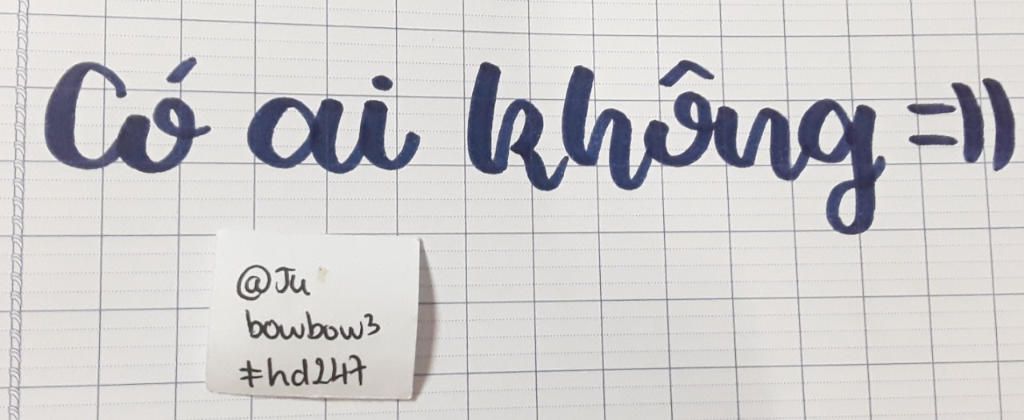 Có ai không =))
@Ju
bowbow3
#hd247